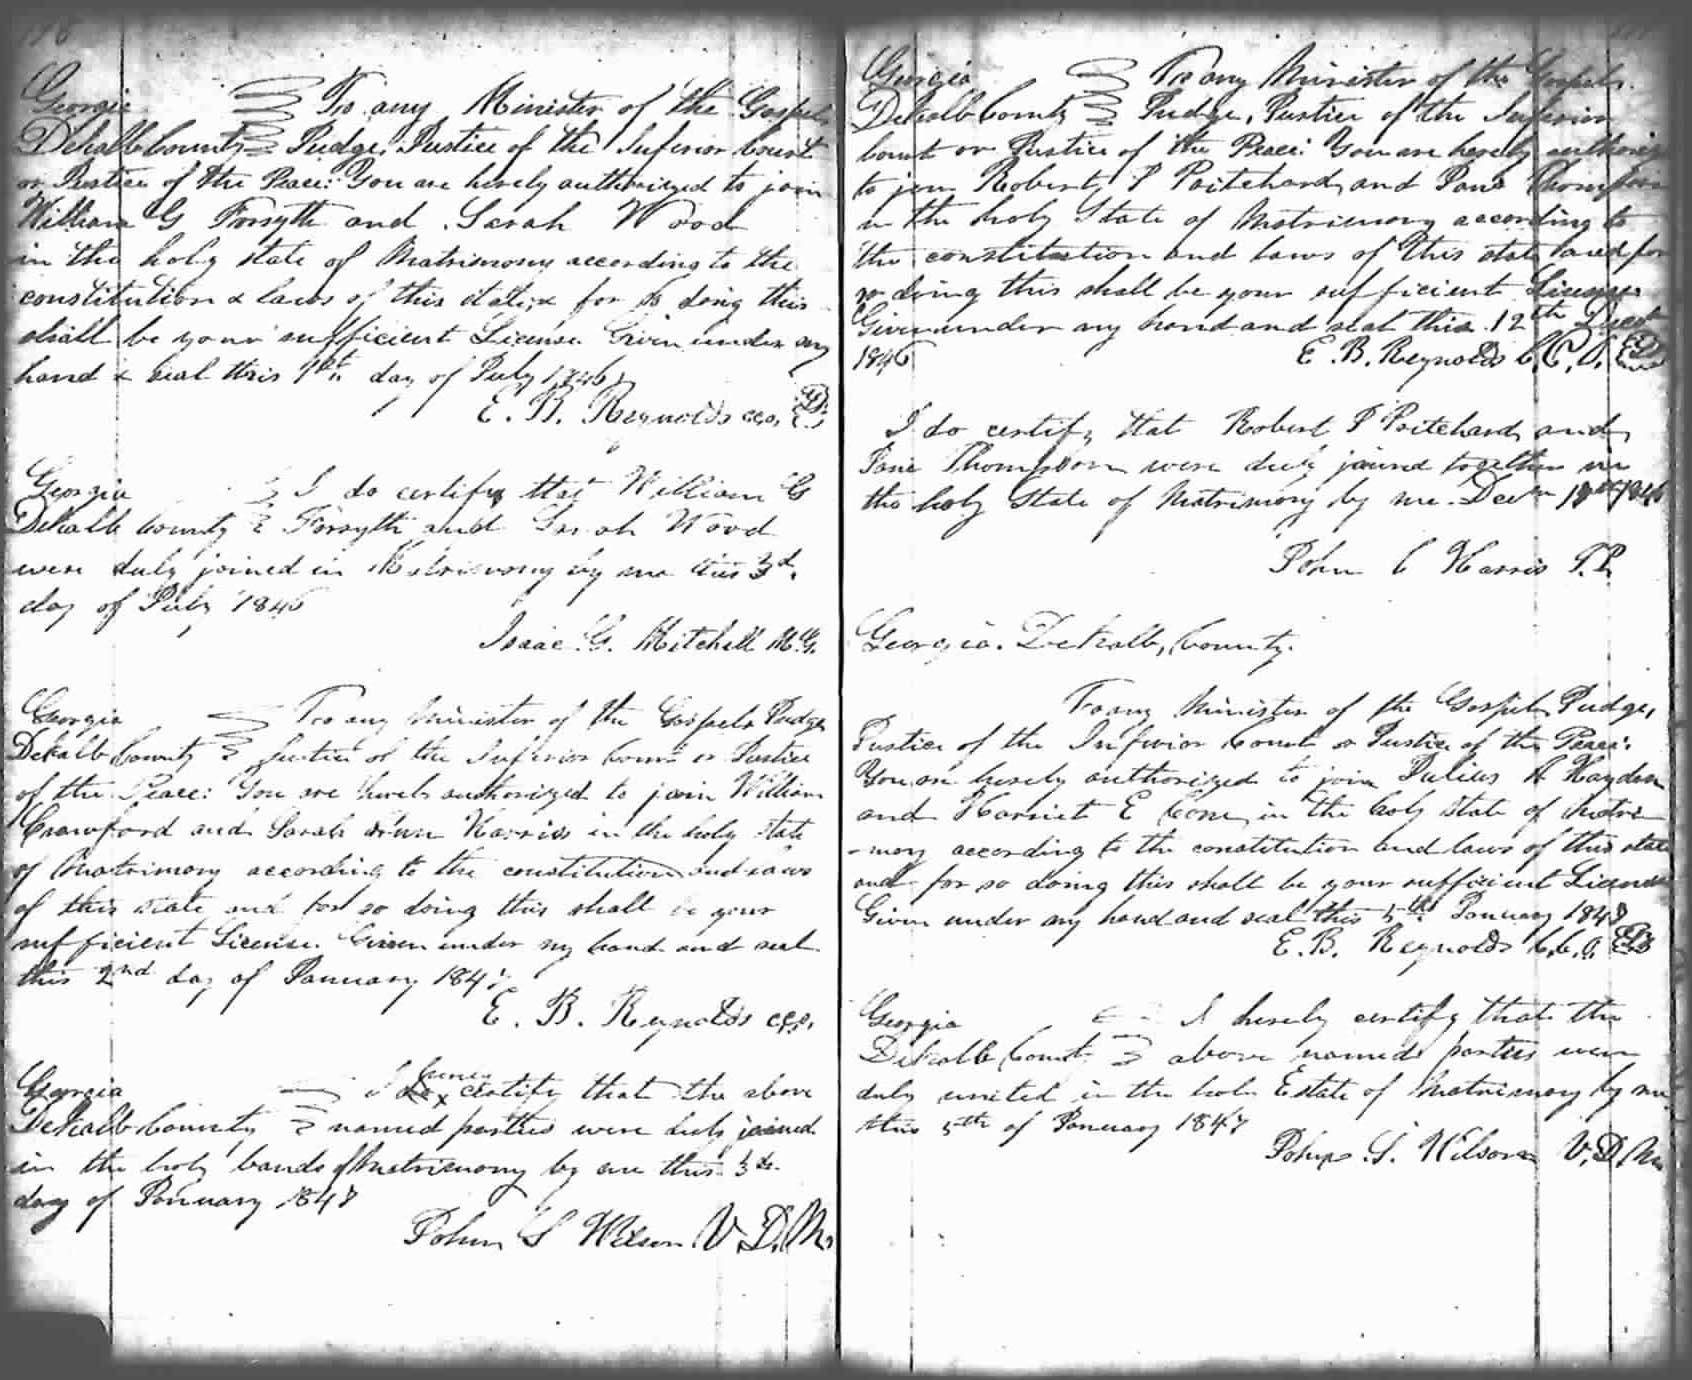 Georgia To any Minister of the Gospel,
Dekalb County Judge, Justice of the Inferior Court
or Justice of the Peace: You are hereby authorized to join
William G Forsyth and Sarah Wood
in the holy state of Matrimony according to the
constitution & laws of this state, & for so doing this
shall be your sufficient License Given under my
hand & seal this 1st day of July 1846
E. B. Reynolds cco,
Georgia I do certify that William G
Dekalb County Forsyth and Sarah Wood
were duly joined in Matrimony by me this 3d.
day of July 1846
Isaac G. Mitchell M.G.
Georgia To any Minister of the Gospel, Judge
Dekalb County Justice of the Inferior Court or Justice
of the Peace: You are hereby authorized to join William
Crawford and Sarah Ann Harris in the holy state
of Matrimony according to the constitution and laws
of this state and for so doing this shall be your
sufficient License. Given under my hand and seal
this 2nd day of January 1847
E. B. Reynolds cco.
Georgia I certify that the above
Dekalb County named parties were duly joined
in the holy bands of Matrimony by me this
day of January 1847
John S Wilson V.D.M.
Georgia To any Minister of the Gospel.
Dekalb County Judge, Justice of the Inferior
Court or Justice of the Peace: You are hereby authorize
to join Robert P Pritchard, and Jane Thompson
in the holy State of Matrimony according to
the constitution and laws of this state and for
so doing this shall be your sufficient License
Given under my hand and seal this 12th Decr
1846
E. B. Reynolds C.C.O.
I do certify that Robert P Pritchard, and
Jane Thompson were duly joined together in
the holy State of Matrimony by me. Decr 1846
John C Harris J.P.
Georgia. Dekalb, County.
To any Minister of the Gospel, Judge,
Justice of the Inferior Court or Justice of the Peace:
You are hereby authorized to join Julius A Hayden
and Harriet E Cone, in the holy state of Matri
-mony according to the constitution and laws of this state
and for so doing this shall be your sufficient License
Given under my hand and seal this 5th January 1847
E. B. Reynolds C.C.O.
Georgia I hereby certify that the
Dekalb County above named parties were
duly united in the holy Estate of Matrimony by me
this 5th of January 1847
John S. Wilson V.D.M.